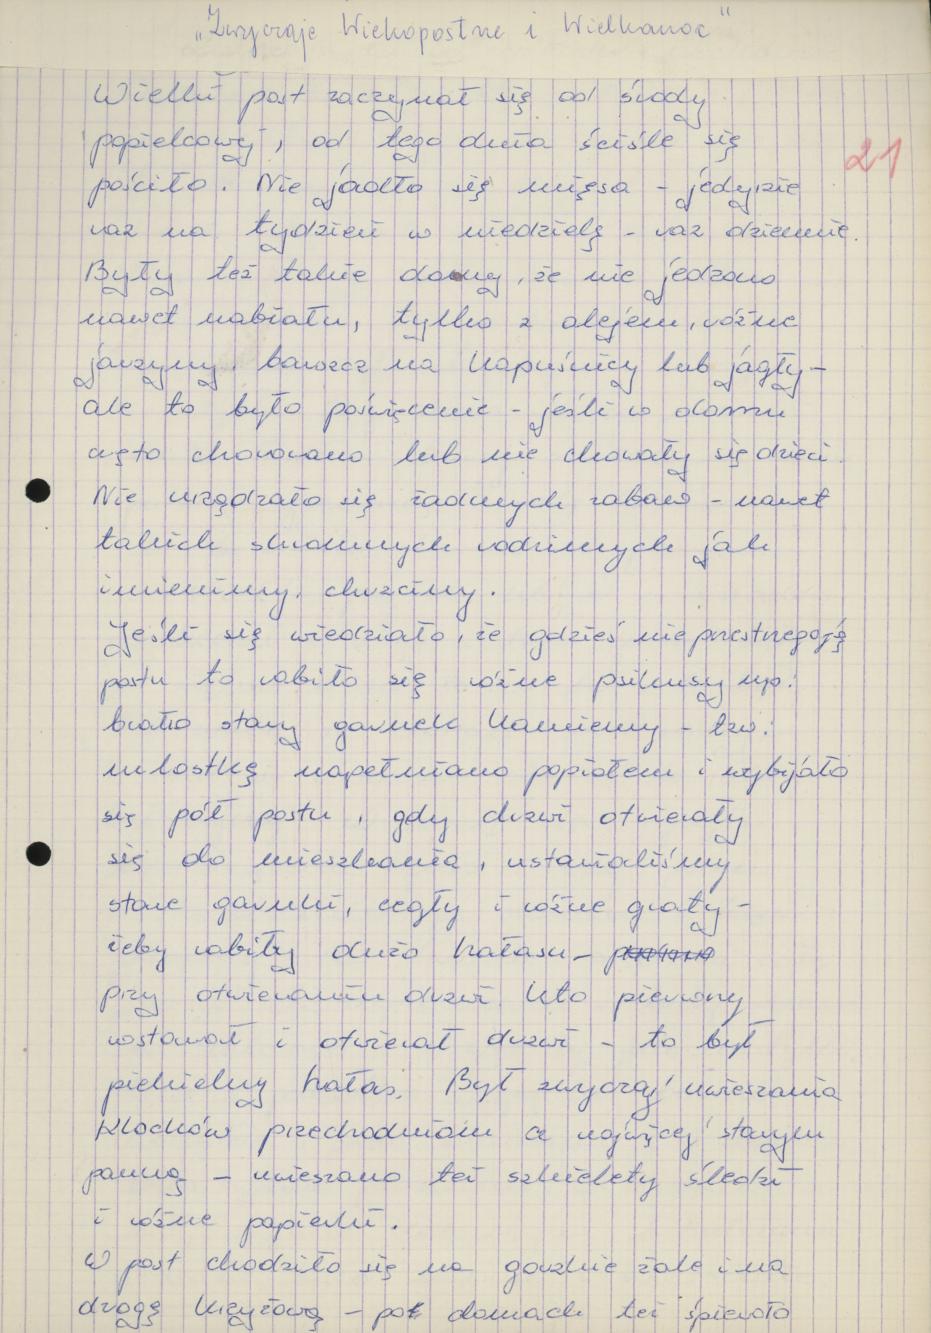 „Zwyczaje Wiekopostne i Wielkanoc"
Wielki post zaczynał się od środy
popielcowej, od tego dnia ściśle się
21
pościło. Nie jadło się mięsa – jedynie
raz na tydzień w niedzielę – raz dziennie.
Były też takie domy, że nie jedzono
nawet nabiału, tylko z olejem, różne
jarzyny, barszcz na kapuśnicy lub jagły –
ale to było poświęcenie – jeśli w domu
często chorowano lub nie chowały się dzieci.
Nie urządzało się żadnych zabaw – nawet
takich skromnych rodzinnych jak
imieniny, chrzciny.
Jeśli się wiedziało, że gdzieś nie przestrzegają
postu to robiło się różne psikusy np:
brało stary garnek kamienny – tzw:
napełniano popiołem i wybijało
się pół postu, gdy drzwi otwierały
się do mieszkania, ustawialiśmy
stare garnki, cegły i różne graty –
żeby robiły dużo hałasu –
przy otwieraniu drzwi. Kto pierwszy
wstawał i otwierał drzwi – to był
piekielny hałas. Był zwyczaj wieszania
klocków przechodniom a najwięcej starym
panną – wieszano też szkielety śledzi
i różne papierki.
W post chodziło się na gorzkie żale i na
drogę krzyżową – po domach też śpiewało